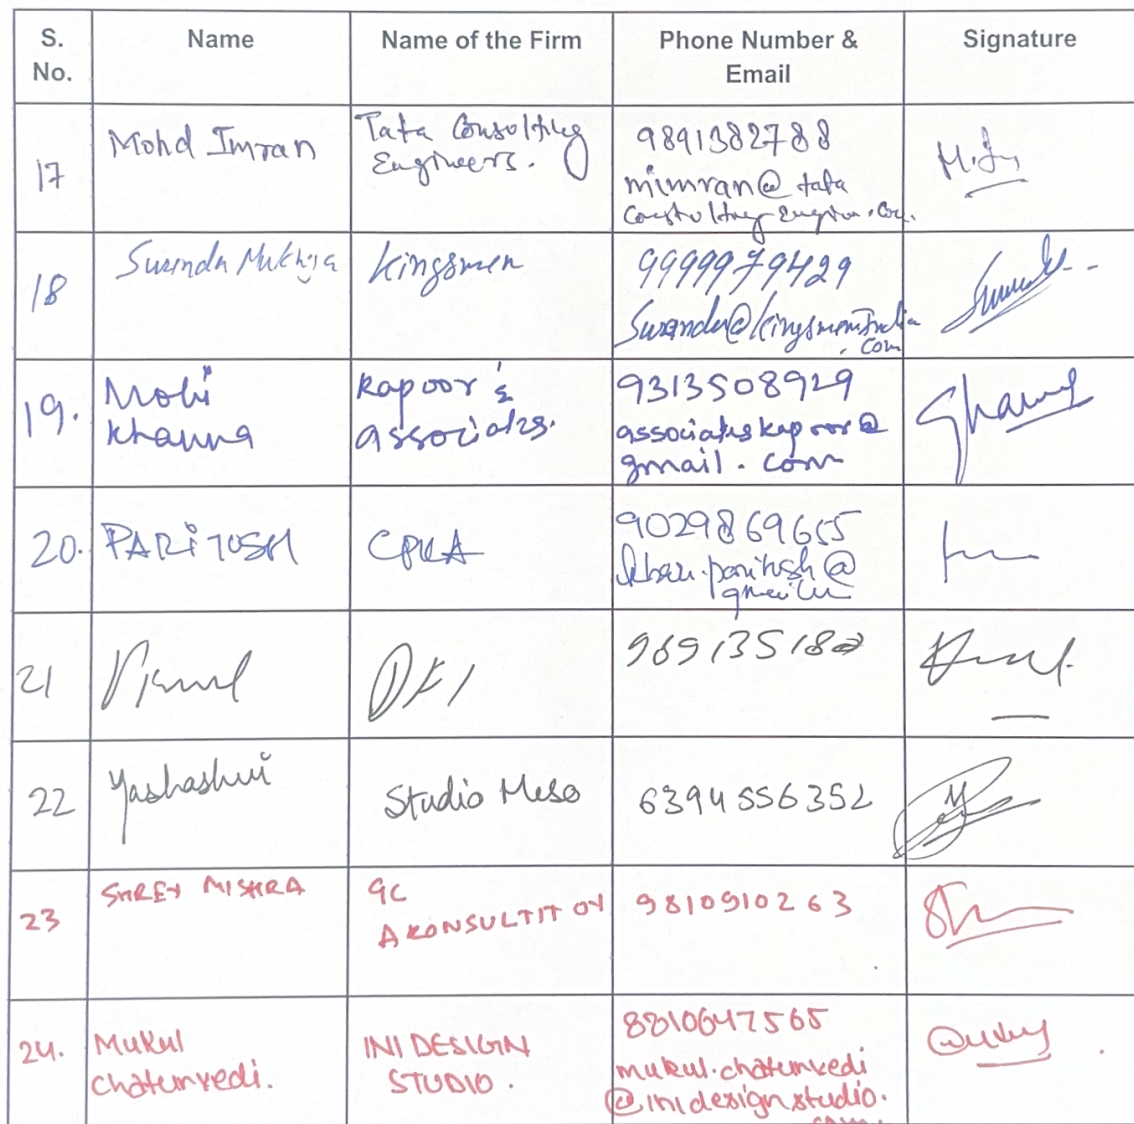 S. No.
Name
Name of the Firm
Phone Number & Email
Signature
17
Mohd Imran
Tata Consulting
Engineers.
9891382788
mimran@tata
18
Surinder Mukhija
Kingsmen
9999979429
Surender@kingsmenIndia
.com
19.
Mohi
Khanna
Kapoor's
associates.
9313508929
associateskapoor@
gmail.com
20.
PARITOSH
CPKA
9029869655
21
22
Yashashwi
Studio Meso
6394556352
23
SHREY MISHRA
GC
9810910263
24.
Mukul
Chaturvedi.
INI DESIGN
STUDIO.
8810647565
mukul.chaturvedi
@inidesignstudio.
com.